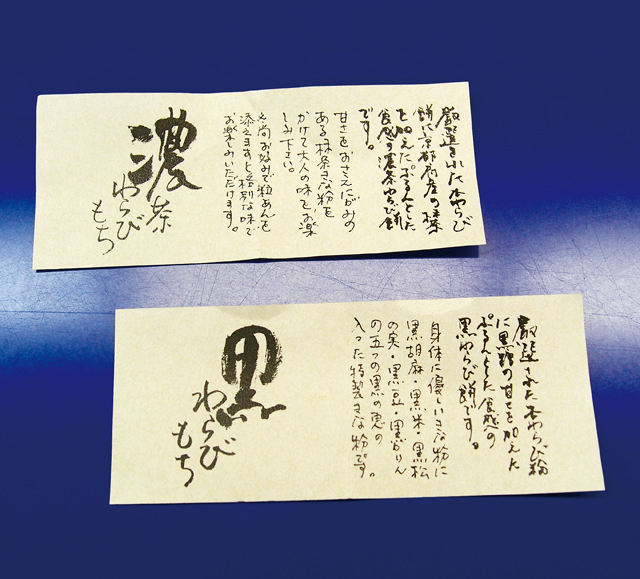 厳選された本わらび
餅に京都府産の抹茶
を加えたぷるんとした
食感の濃茶わらび餅
です。
甘さをおさえにがみの
ある抹茶きな粉を
かけて大人の味をお楽
しみ下さい。
尚お好みで粒あんを
添えますと格別な味で
お楽しみいただけます。
濃茶
わらび
もち
厳選された本わらび粉
に黒糖の甘さを加えた
ぷるんとした食感の
黒わらび餅です。
身体に優しいきな粉に
黒胡麻・黒米・黒松
の実・黒豆・黒かりん
の五つの黒の恵の
入った特製きな粉です。
黒
わらび
もち